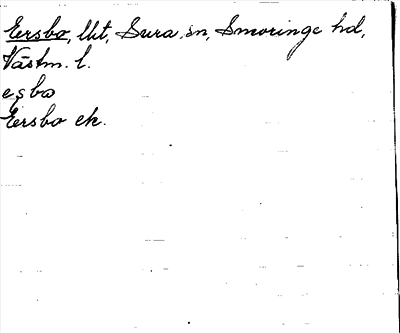 Eersbo, lht, Sura sn, Snevringe hd,
Västm. l.
eşbo
Eersbo ek.